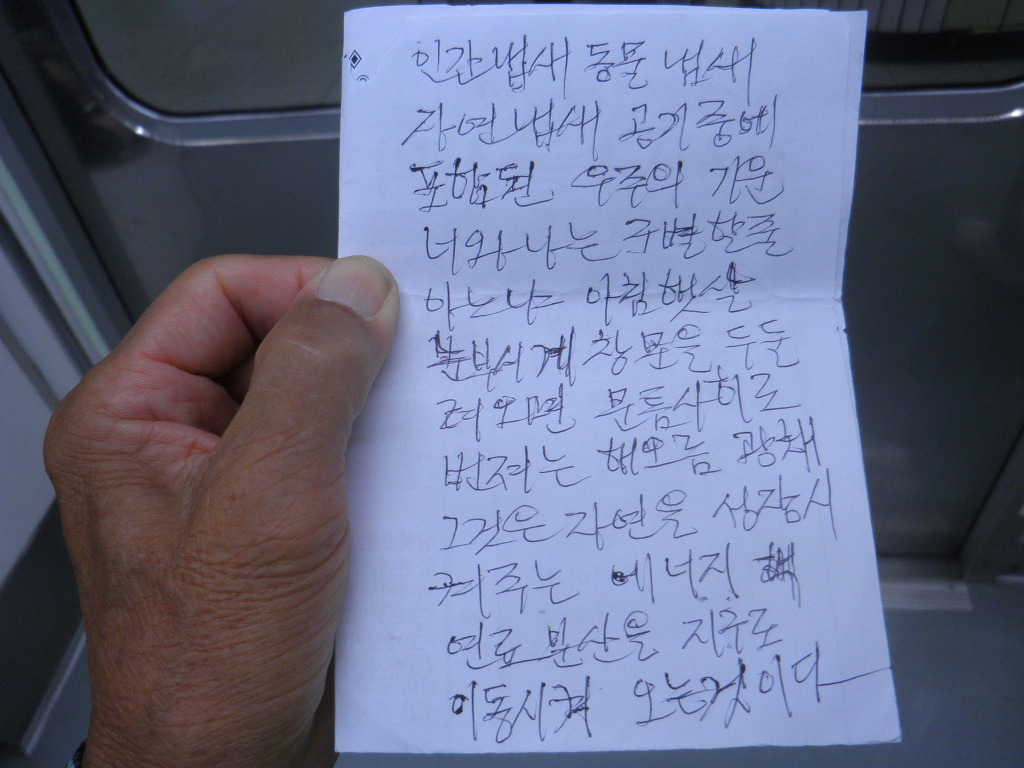 인간냅새 동물 냅새
자연냅새 공기중에
포함된 우주의 기운
너와나는 구별할줄
아느냐 아침햇살
눈부시게 창문을 두둘
겨오면 문틈사히로
번져는 해오름 광채
그것은 자연을 성장시
켜주는 에너지 핵
연료 분산을 지구로
이동시켜 오는것이다